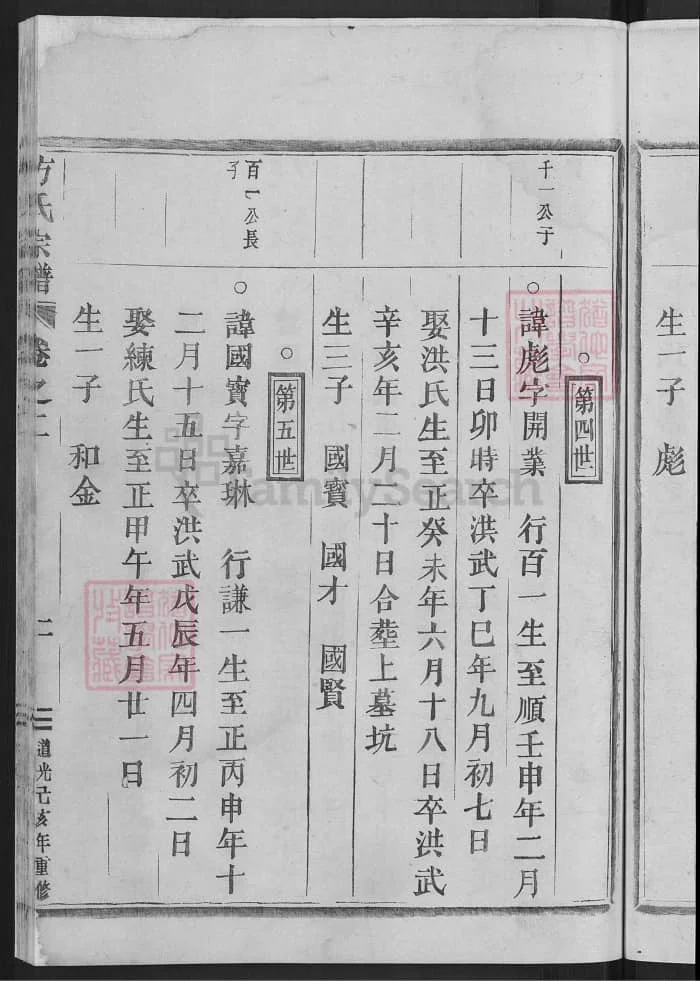 生一子 彪
第四世
千一公子
諱彪字開業 行百一生至順壬申年二月
十三日卯時卒洪武丁巳年九月初七日
娶洪氏生至正癸未年六月十八日卒洪武
辛亥年二月二十日合塟上墓坑
生三子 國寳 國才 國賢
第五世
百一公長子
諱國寳字嘉琳 行謙一生至正丙申年十
二月十五日卒洪武戊辰年四月初二日
娶練氏生至正甲午年五月廿一日
生一子 和金
方氏宗譜 卷之二 二 道光己亥年重修
FamilySearch